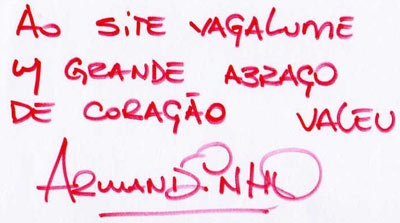 AO SITE VAGALUME
UM GRANDE ABRAÇO
DE CORAÇÃO VALEU
ARMANDINHO